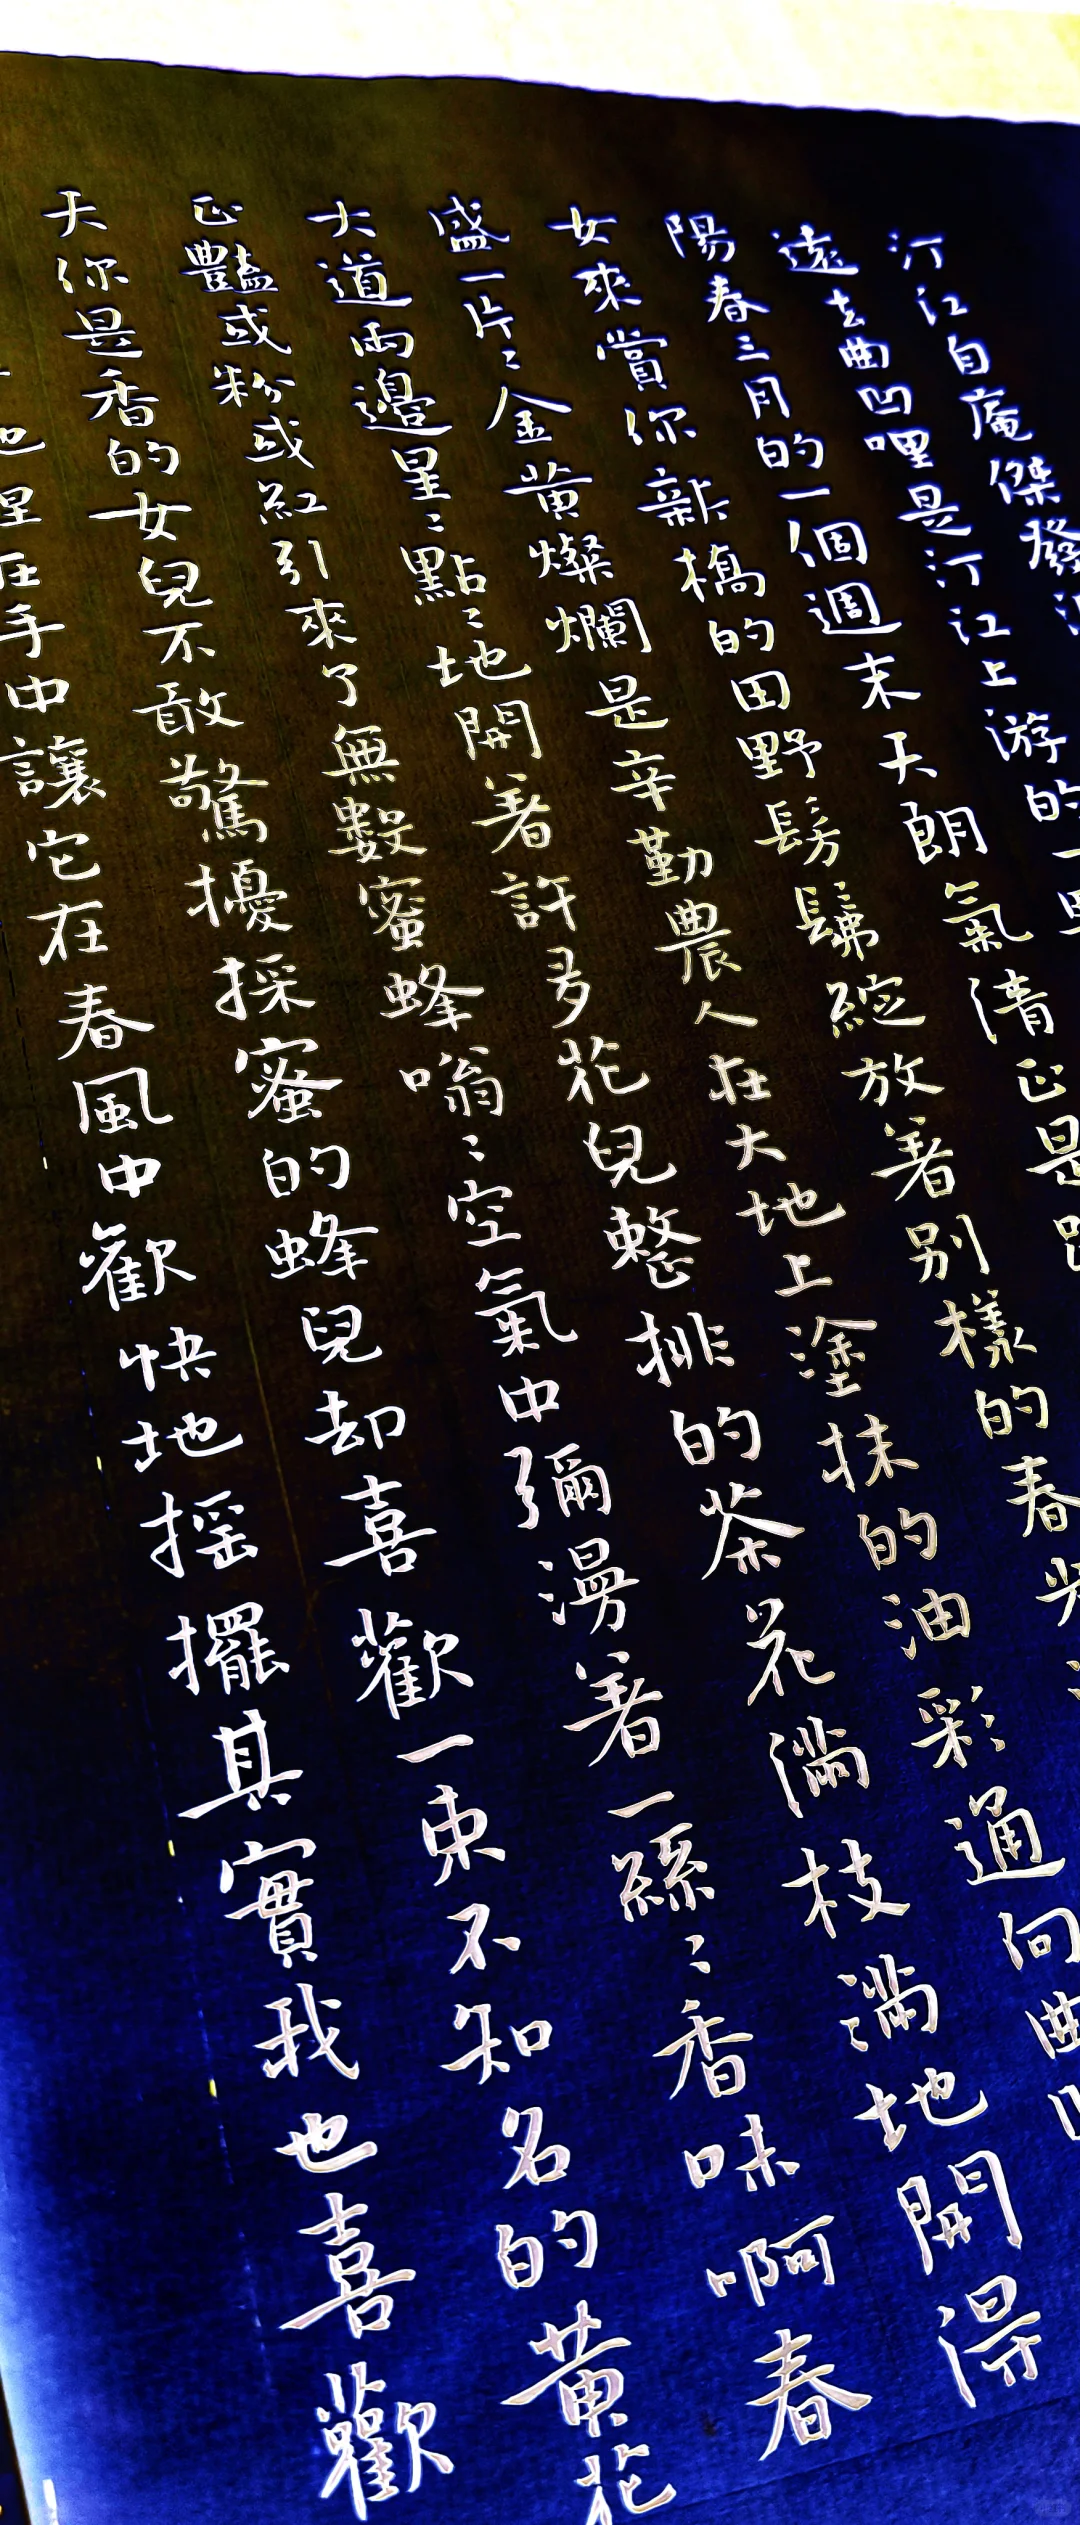 汀江自庵傑發
遠去曲凹哩是汀江上游的一
陽春三月的一個週末天朗氣清正是
女來賞你新橋的田野髣髴綻放著別樣的春光
盛一片〻金黃燦爛是辛勤農人在大地上塗抹的油彩通向曲凹
大道兩邊星〻點〻地開著許多花兒整排的茶花滿枝滿地開得
正豔或粉或紅引來了無數蜜蜂嗡〻空氣中彌漫著一絲〻香味啊春
天你是香的女兒不敢驚擾採蜜的蜂兒却喜歡一束不知名的黃花
地捏在手中讓它在春風中歡快地搖擺其實我也喜歡